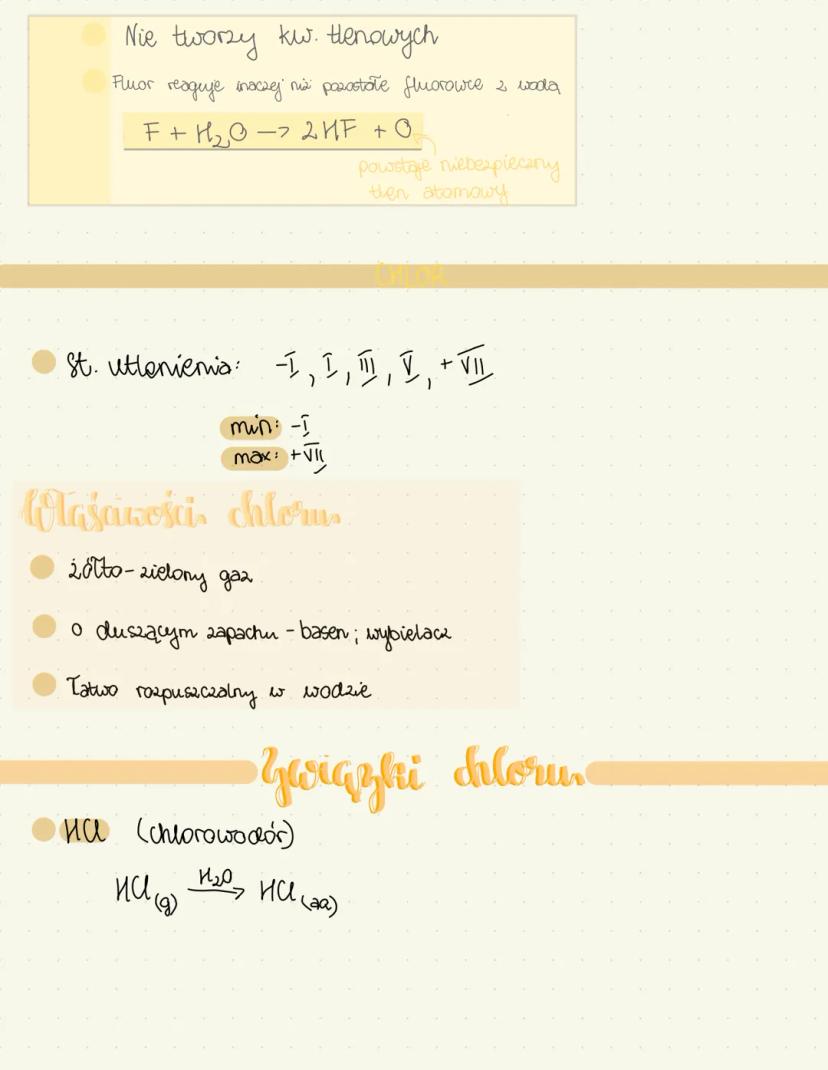 Nie tworzy kw. tlenowych
Fluor reaguje inaczej niż pozostałe fluorowce z wodą
F + H₂O → 2HF + O
powstaje niebezpieczny
tlen atomowy
CHLOR
St. utlenienia: -I, I, III, V, +VII
min: -I
max: +VII
Właściwości chloru
żółto-zielony gaz
o duszącym zapachu - basen; wybielacz
Łatwo rozpuszczalny w wodzie
Związki chloru
HCl (chlorowodór)
HCl(g) H₂O → HCl(aq)